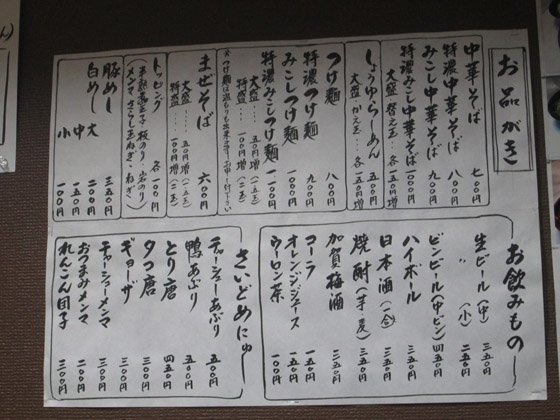 お品がき
中華そば 七〇〇円
特濃中華そば 八〇〇円
みこし中華そば 九〇〇円
特濃みこし中華そば 一〇〇〇円
大盛・替え玉…各一五〇円増
しょうゆらーめん 五〇〇円
大盛・かえ玉…各一五〇円増
つけ麺 八〇〇円
特濃つけ麺 九〇〇円
みこしつけ麺 一〇〇〇円
特濃みこしつけ麺 一一〇〇円
大盛…五〇円増
特盛…一〇〇円増
まぜそば 六〇〇円
大盛…五〇円増(一・五玉)
特盛…一〇〇円増(二玉)
トッピング 各一〇〇円
豚めし 三五〇円
白めし
大 二〇〇円
中 一五〇円
小 一〇〇円
お飲みもの
生ビール(中) 三五〇円
〃(小) 二五〇円
ビンビール(中ビン) 四五〇円
ハイボール 三五〇円
日本酒(一合) 三五〇円
焼酎(芋・麦) 三五〇円
加賀梅酒 三五〇円
コーラ 一五〇円
オレンジジュース 一五〇円
ウーロン茶 一〇〇円
さいどめにゅー
チャーシューあぶり 五〇〇円
鴨あぶり 五〇〇円
とり唐 四五〇円
タコ唐 三〇〇円
ギョーザ 三〇〇円
チャーシューメンマ 三〇〇円
おつまみメンマ 二〇〇円
れんこん団子 三〇〇円